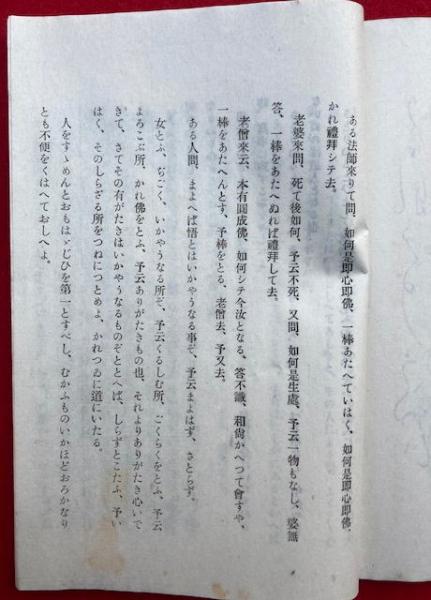 ある法師來りて問、如何是即心即佛、一棒あたへていはく、如何是即心即佛、
かれ禮拜シテ去。
老婆來問、死て後如何、予云不死、又問、如何是生處、予云一物もなし、婆誑
答、一棒をあたへぬれば禮拜して去。
老僧來云、本有圓成佛、如何シテ今汝となる、答不識、和尚かへつて會すや、
一棒をあたへんとす、予棒をとる、老僧去、予又去。
ある人問、まよへば悟とはいかやうなる事ぞ、予云まよはず、さとらず。
女とふ、ぢごく、いかやうなる所ぞ、予云くるしむ所、ごくらくをとふ、予云
よろこぶ所、かれ佛をとふ、予云ありがたきもの也、それよりありがたき心いで
きて、さてその有がたきはいかやうなるものぞととへば、しらずとこたふ、予い
はく、そのしらざる所をつねにつとめよ、かれつゐに道にいたる。
人をすゝめんとおもはゞじひを第一とすべし、むかふものいかほどおろかなり
とも不便をくはへておしへよ。